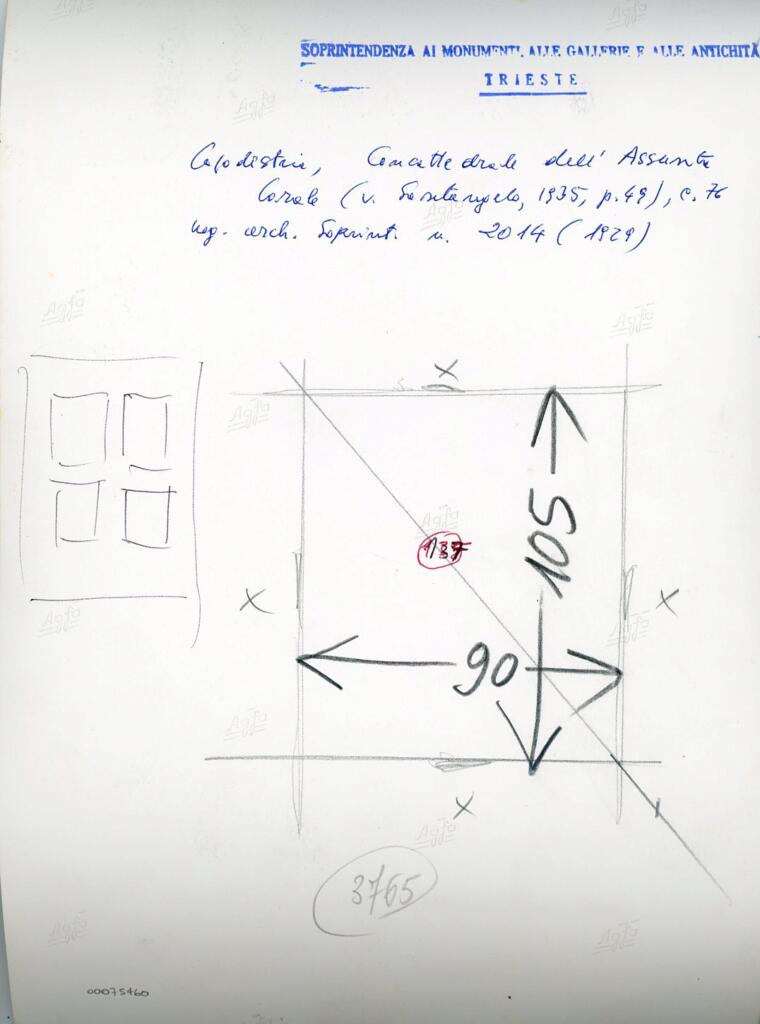 SOPRINTENDENZA AI MONUMENTI, ALLE GALLERIE E ALLE ANTICHITÀ
TRIESTE
Capodistria, Concattedrale dell' Assunta
Corale (v. Santangelo, 1935, p. 49), c. 76
neg. arch. Soprint. n. 2014 (1929)
X
105
137
X
X
90
X
3765
00075460
Agfa